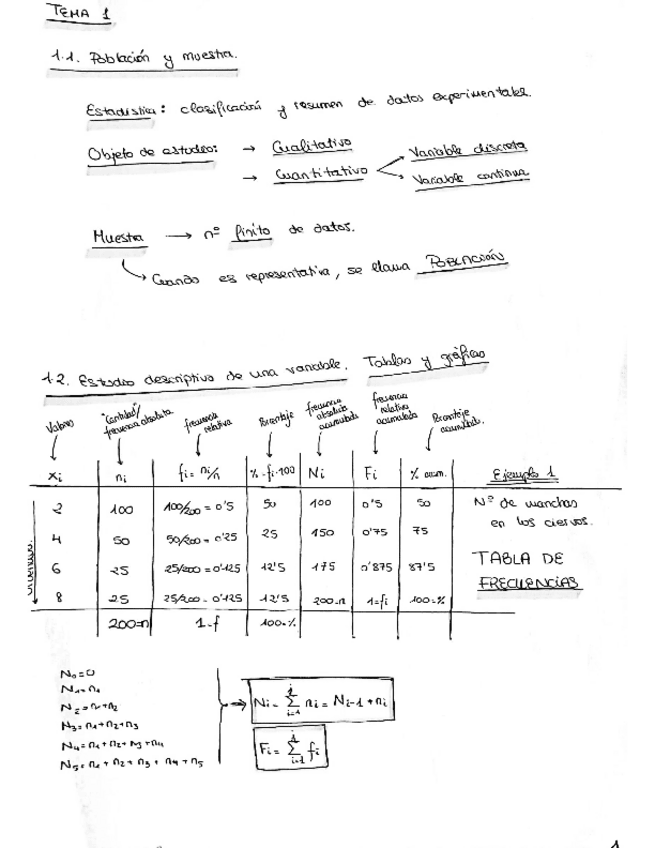 TEMA 1
1.1. Población y muestra.
Estadística: clasificación y resumen de datos experimentales.
Objeto de estudio: → Cualitativo
→ Cuantitativo
Variable discreta
Variable continua
Muestra → nº finito de datos.
Cuando es representativa, se llama POBLACIÓN
1.2. Estudio descriptivo de una variable. Tablas y gráficos
Valores "Cantidad"/ frecuencia absoluta frecuencia relativa Porcentaje frecuencia absoluta acumulada frecuencia relativa acumulada Porcentaje acumulado.
xi ni fi = ni/n % = fi·100 Ni Fi % acum. Ejemplo 1
2 100 100/200 = 0'5 50 100 0'5 50 Nº de manchas
4 50 50/200 = 0'25 25 150 0'75 75 en los ciervos.
6 25 25/200 = 0'125 12'5 175 0'875 87'5 TABLA DE
8 25 25/200 = 0'125 12'5 200=n 1=fi 100=% FRECUENCIAS
200=n 1=f 100=%
Ordenado.
N₀=0
N₁=n₁
N₂=n₁+n₂
N₃=n₁+n₂+n₃
N₄=n₁+n₂+n₃+n₄
N₅=n₁+n₂+n₃+n₄+n₅
Ni = Σ ni = Ni-1 + ni
Fi = Σ fi
1